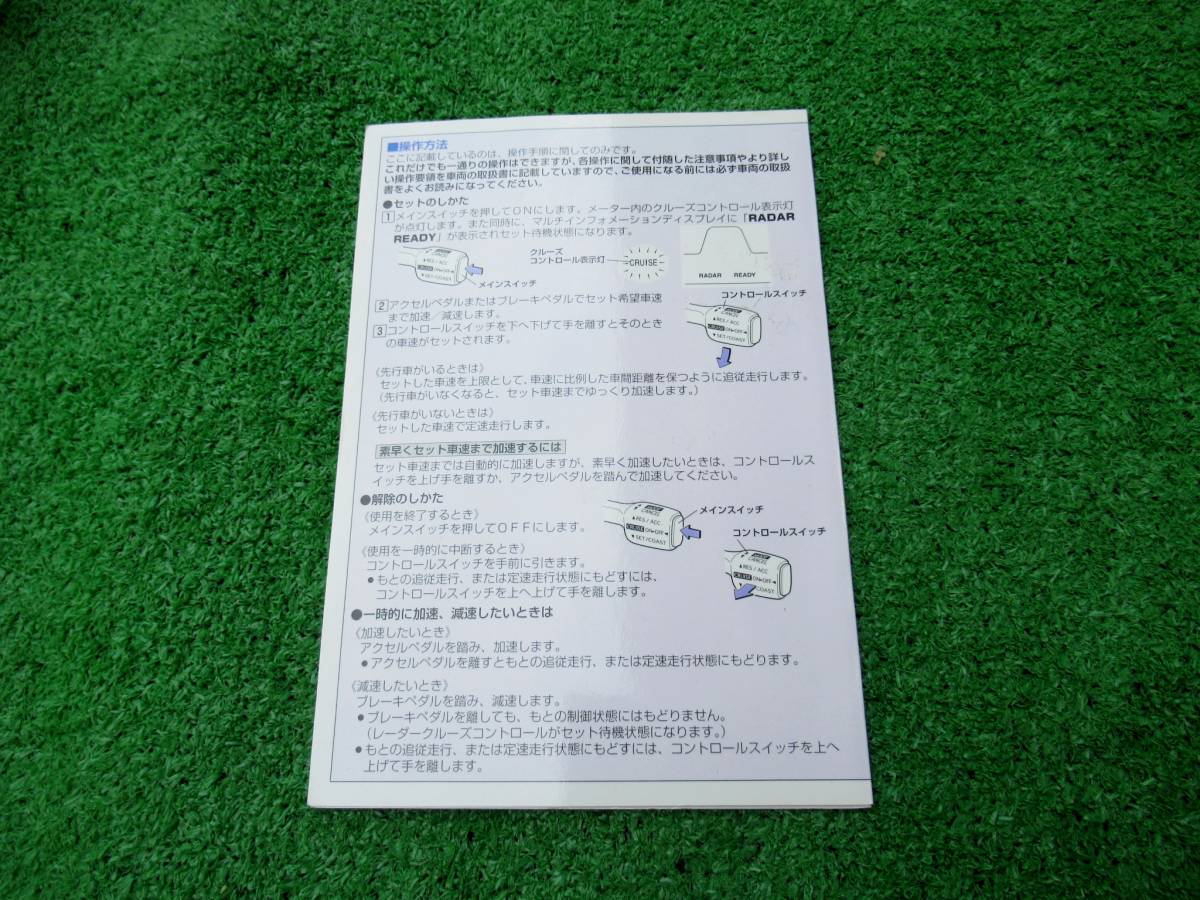 ■操作方法
ここに記載しているのは、操作手順に関してのみです。
これだけでも一通りの操作はできますが、各操作に関して付随した注意事項やより詳し
い操作要領を車両の取扱書に記載していますので、ご使用になる前には必ず車両の取扱
書をよくお読みになってください。
●セットのしかた
1 メインスイッチを押してONにします。メーター内のクルーズコントロール表示灯
が点灯します。また同時に、マルチインフォメーションディスプレイに「RADAR
READY」が表示されセット待機状態になります。
CANCEL
▲RES/ACC
CRUISE ON▸OFF◂
▼SET/COAST
メインスイッチ
クルーズ
コントロール表示灯
CRUISE
RADAR READY
2 アクセルペダルまたはブレーキペダルでセット希望車速
まで加速／減速します。
3 コントロールスイッチを下へ下げて手を離すとそのとき
の車速がセットされます。
コントロールスイッチ
▲RES/ACC
CRUISE ON▸OFF◂
▼SET/COAST
《先行車がいるときは》
セットした車速を上限として、車速に比例した車間距離を保つように追従走行します。
（先行車がいなくなると、セット車速までゆっくり加速します。）
《先行車がいないときは》
セットした車速で定速走行します。
素早くセット車速まで加速するには
セット車速までは自動的に加速しますが、素早く加速したいときは、コントロールス
イッチを上げ手を離すか、アクセルペダルを踏んで加速してください。
●解除のしかた
《使用を終了するとき》
メインスイッチを押してOFFにします。
CANCEL
▲RES/ACC
CRUISE ON▸OFF◂
▼SET/COAST
メインスイッチ
《使用を一時的に中断するとき》
コントロールスイッチを手前に引きます。
●もとの追従走行、または定速走行状態にもどすには、
コントロールスイッチを上へ上げて手を離します。
コントロールスイッチ
CANCEL
▲RES/ACC
CRUISE ON▸OFF◂
/COAST
●一時的に加速、減速したいときは
《加速したいとき》
アクセルペダルを踏み、加速します。
●アクセルペダルを離すともとの追従走行、または定速走行状態にもどります。
《減速したいとき》
ブレーキペダルを踏み、減速します。
●ブレーキペダルを離しても、もとの制御状態にはもどりません。
（レーダークルーズコントロールがセット待機状態になります。）
●もとの追従走行、または定速走行状態にもどすには、コントロールスイッチを上へ
上げて手を離します。